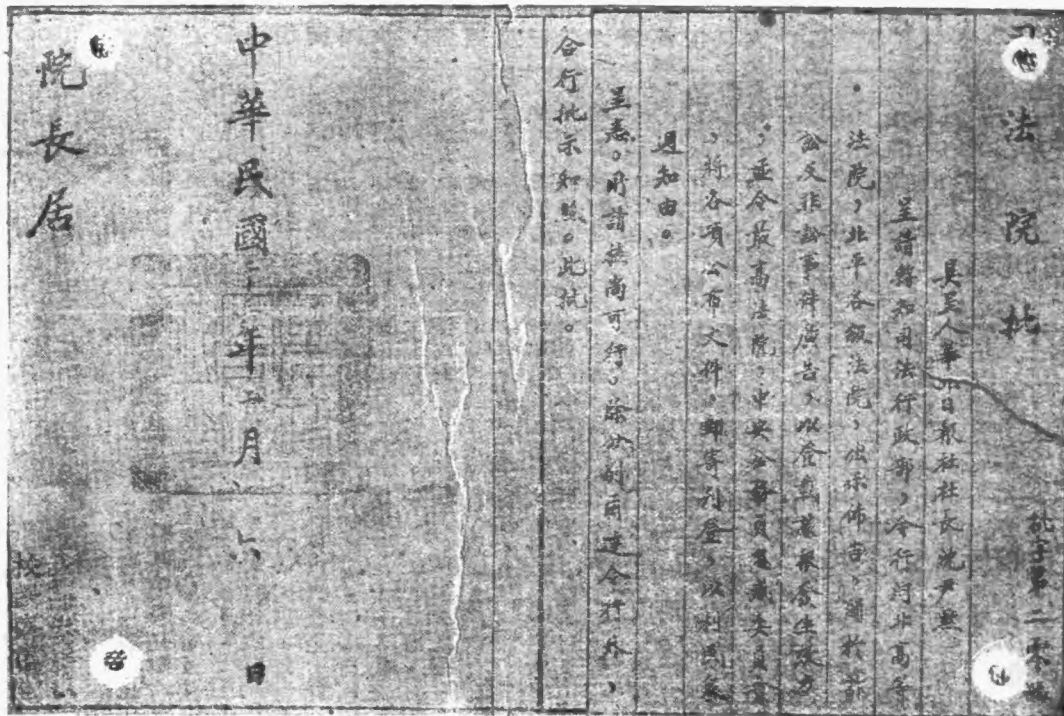 司法院批
批字第二零
具呈人華北日報社社長沈尹默
呈請轉知司法行政部，令行河北高等
法院，北平各級法院，出示佈告，關於訴
訟及非訟事件廣告，以登載該報發生效力
，並令最高法院，中央公務員懲戒委員會
，將各項公布文件，郵寄刊登，以利民衆
週知由。
呈悉。所請核尚可行，除分別函達令行外，
合行批示知照。此批。
中華民國二年二月六日
院長居